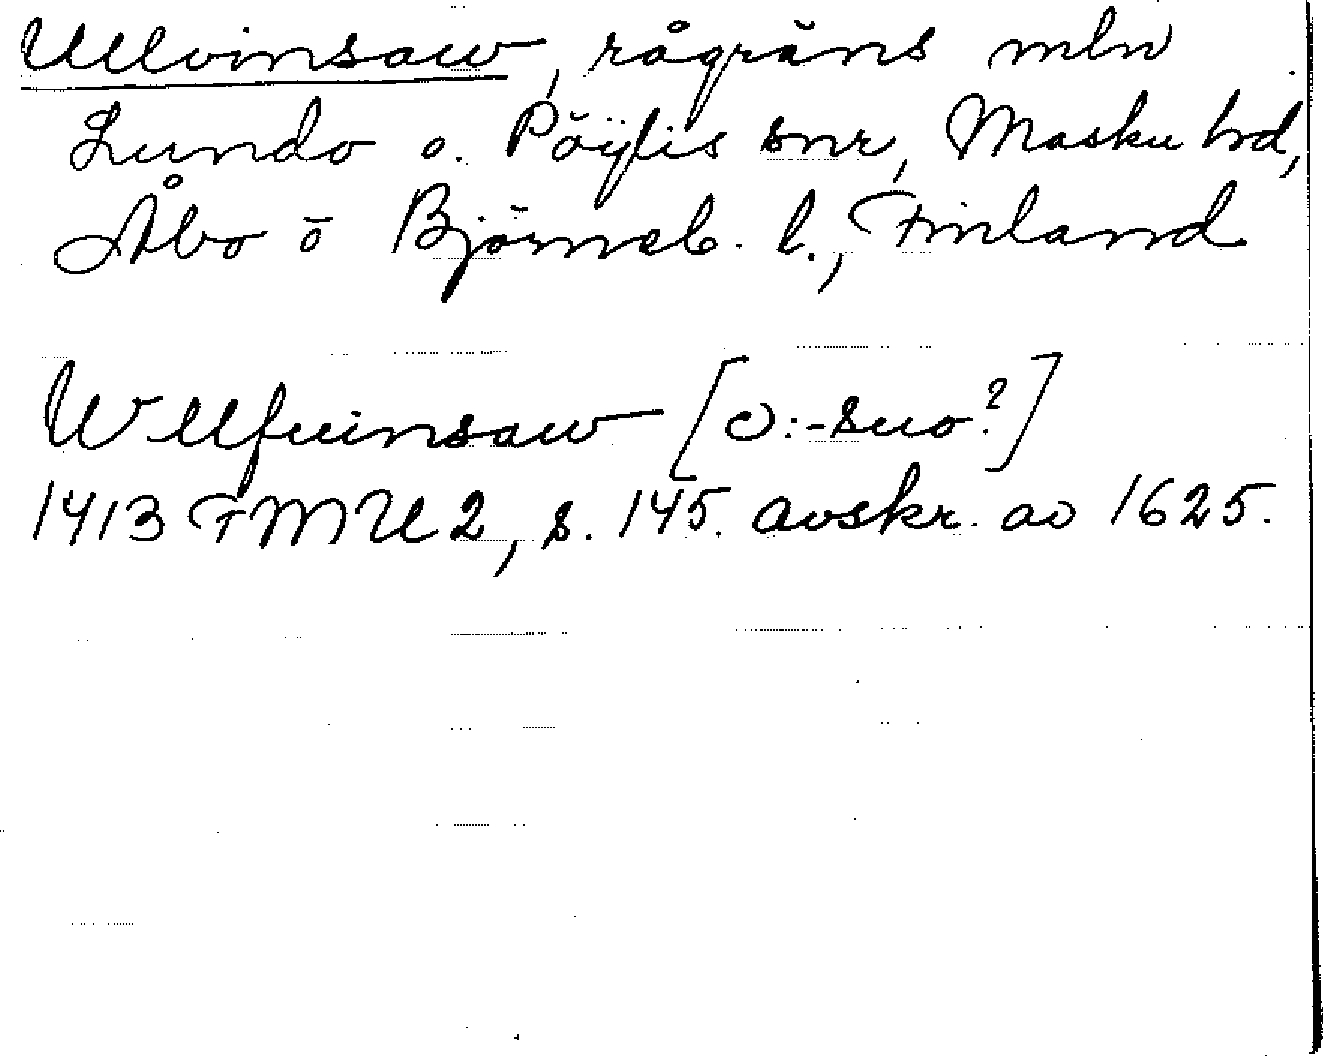 Ullvinsaw, rågräns mln
Lundo o. Pöÿtis snr, Masku hd,
Åbo o Björneb. l., Finland
Wllfuinsaw [ɔ: -suo?]
1413 FMU 2, s. 145. avskr. av 1625.